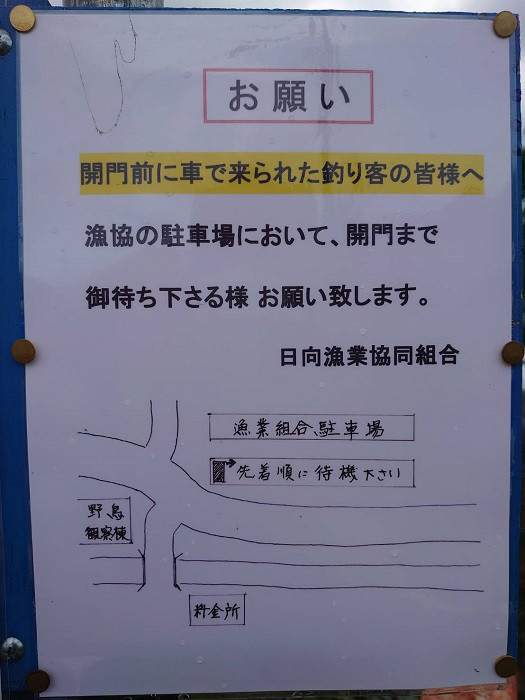 お願い
開門前に車で来られた釣り客の皆様へ
漁協の駐車場において、開門まで
御待ち下さる様 お願い致します。
日向漁業協同組合
漁業組合駐車場
先着順に待機下さい
野鳥
観察棟
料金所